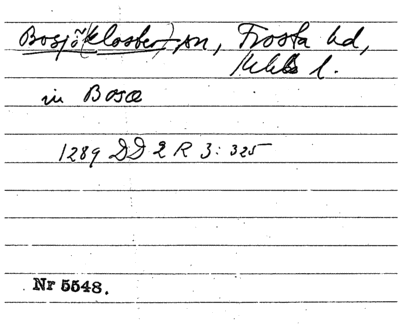 Bosjö(kloster) sn, Frosta hd,
l.
in Bosø
1289 DD 2 R 3: 325
Nr 5548.